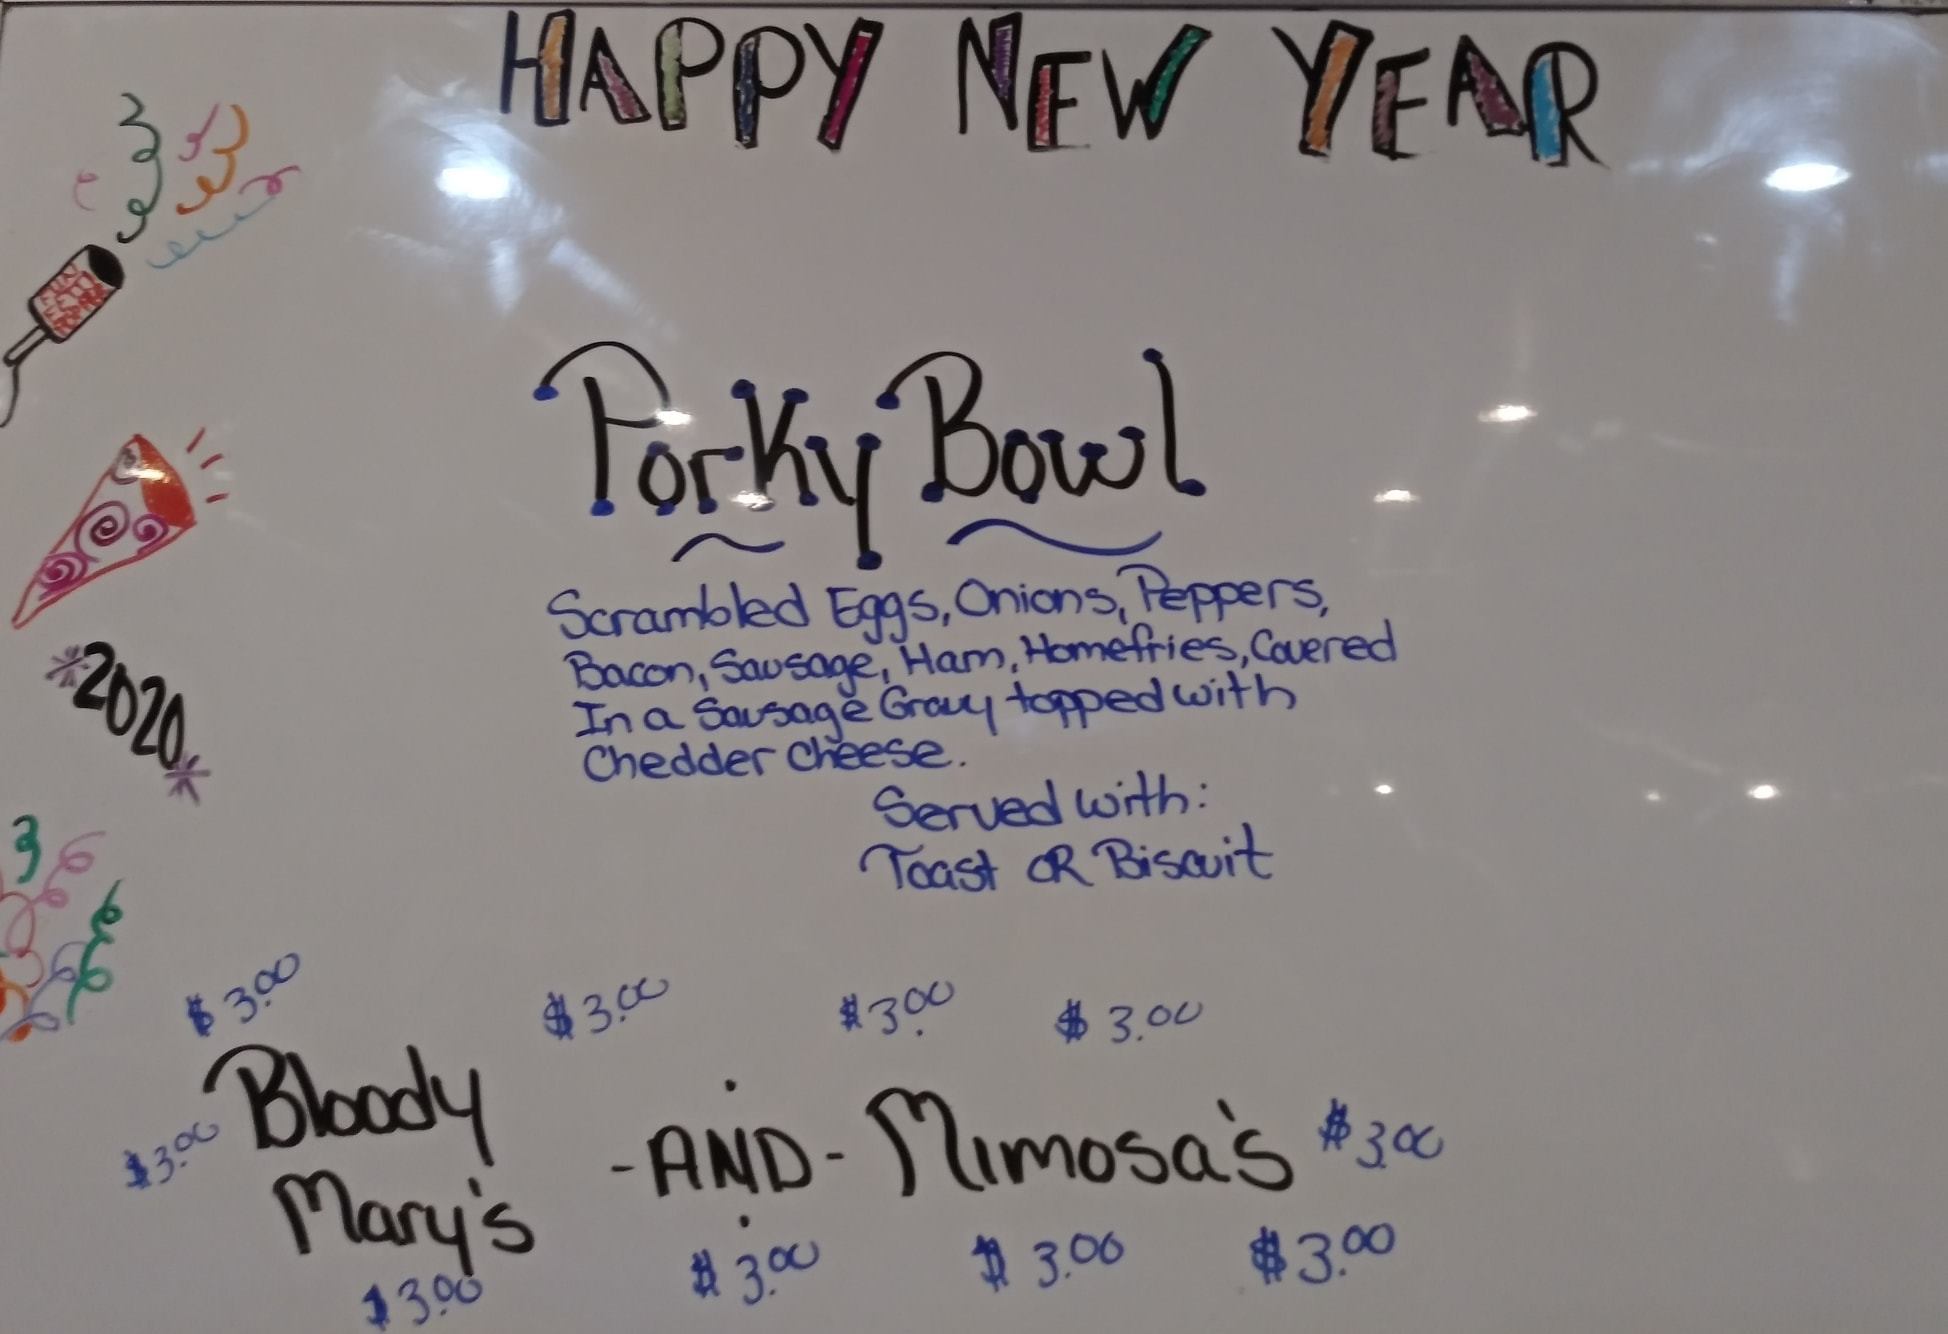 HAPPY NEW YEAR
Porky Bowl
Scrambled Eggs, Onions, Peppers,
Bacon, Sausage, Ham, Homefries, Covered
In a Sausage Gravy topped with
Chedder cheese.
Served with:
Toast OR Biscuit
*2020*
$3.00 $3.00 $3.00 $3.00
Bloody
$3.00
Mary's
-AND- Mimosa's $3.00
$3.00 $3.00 $3.00 $3.00